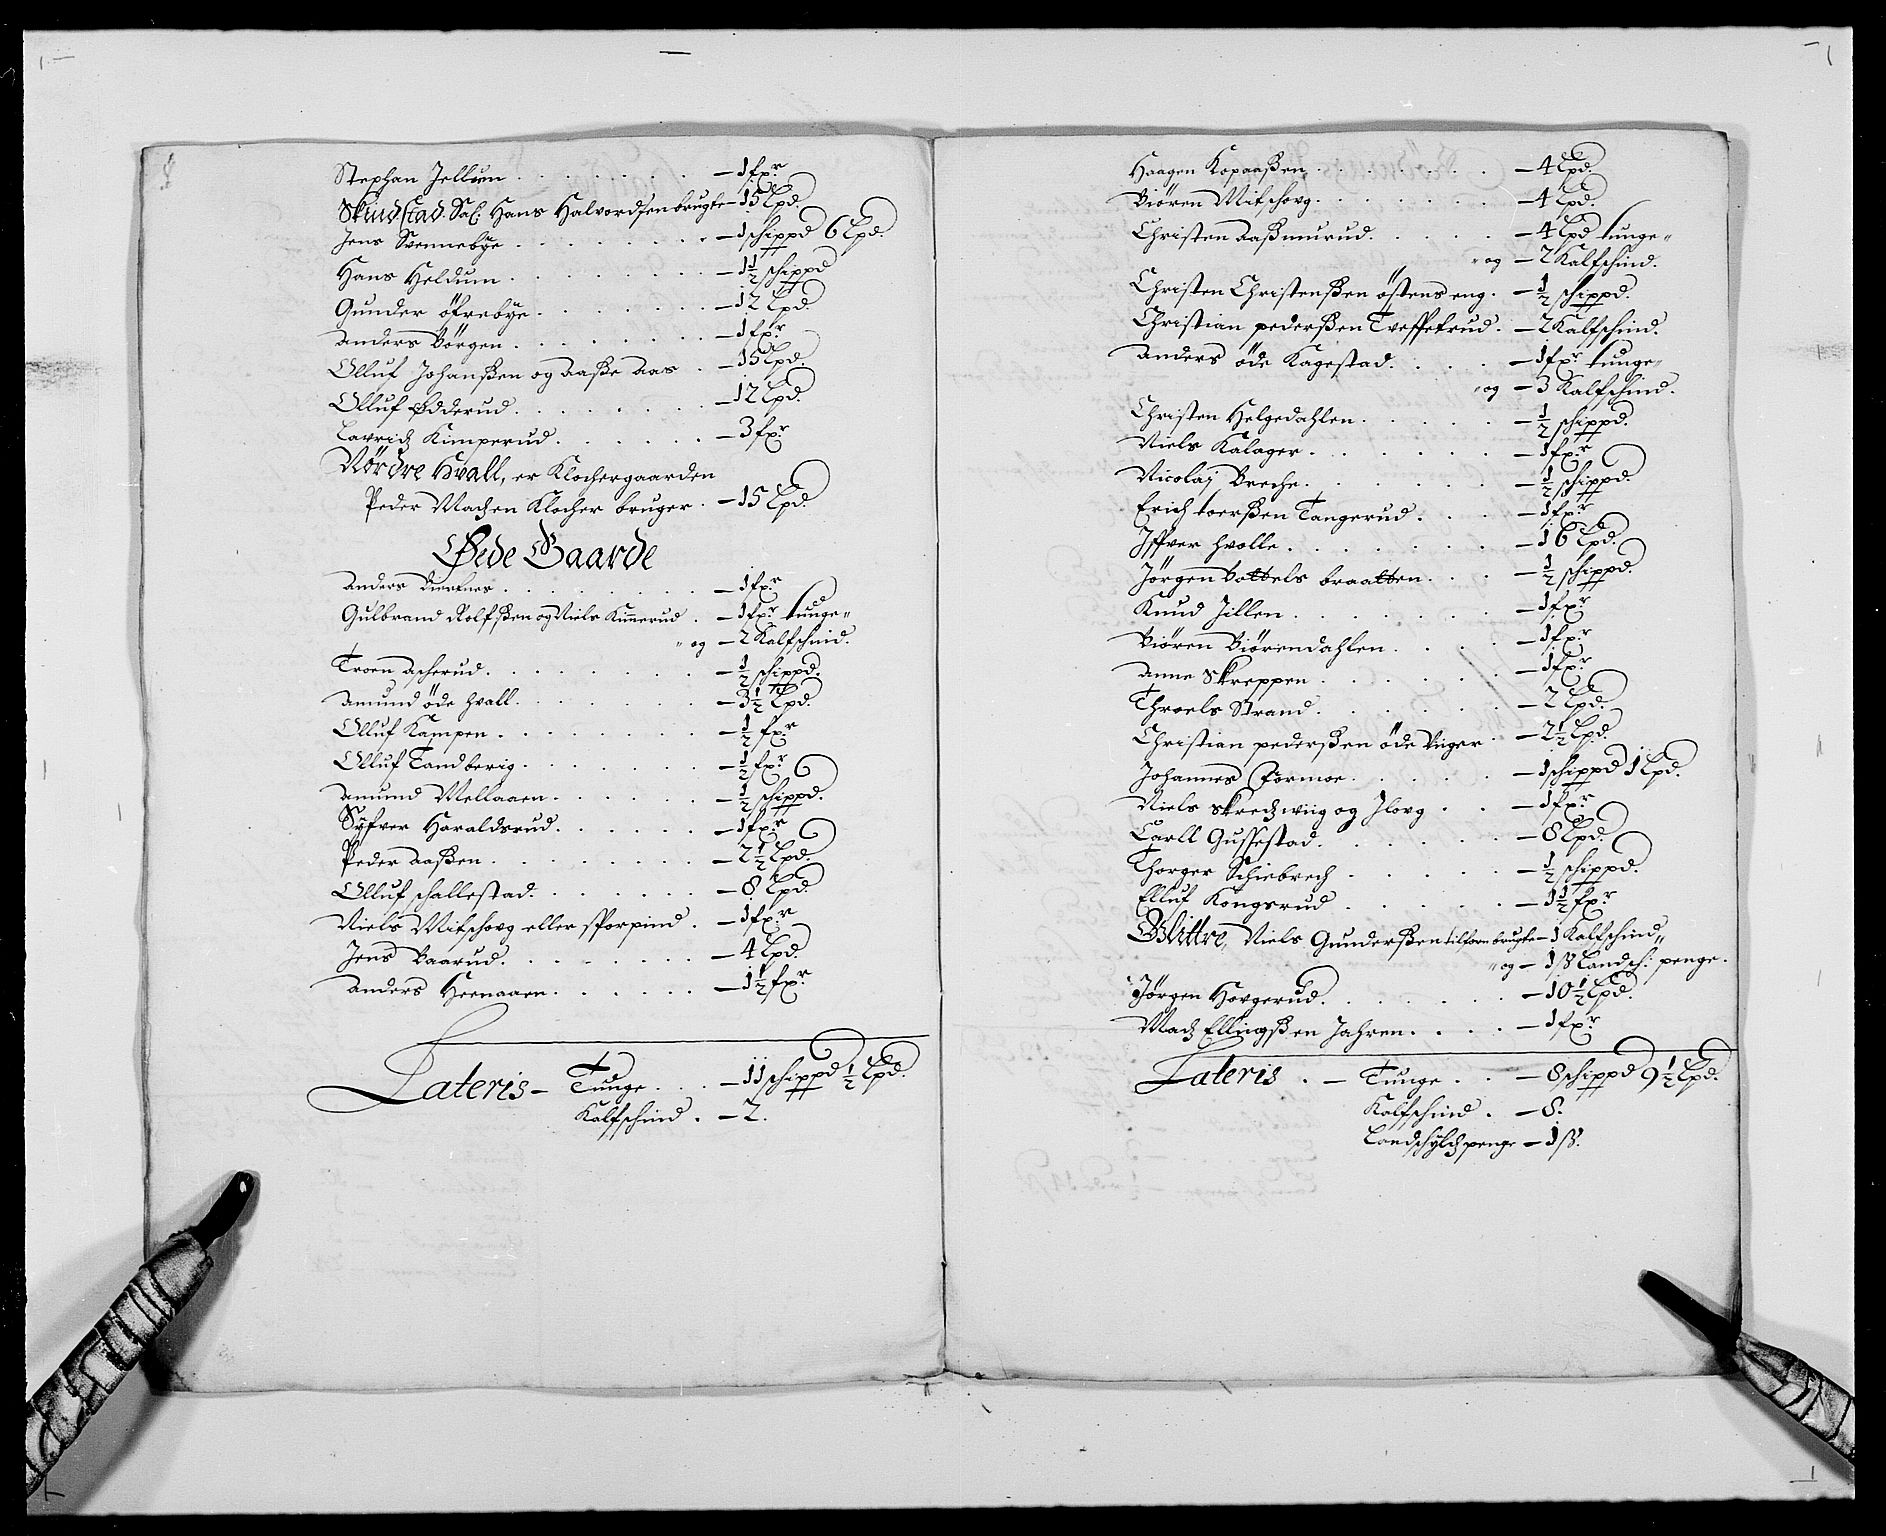 Stephan Jellum . . . . . . . — 1 fxr
Skindstad. Sal: Hans Halvordsen brugte — 15 Lpd.
Jens Svennebye . . . . . . . — 1 schippd 6 Lpd.
Hans Heldum . . . . . . . — 1½ schippd
Gunder öfrebye . . . . . . — 12 Lpd.
Anders Börgen . . . . . . . — 1 fxr
Olluf Johanßen og Aaße Aas . — 15 Lpd.
Olluf Ødderud . . . . . . . — 12 Lpd.
Lavridz Kimperud . . . . . . — 3 fxr
Nördre Hvall, er Klochergaarden
Peder Madzen Klocher bruger . — 15 Lpd.
Øede Gaarde
Anders . . . . . . . — 1 fxr
Gulbrand Rolfßen og Niels Kinnerud . — 1 fxr tunge„
„ og — 2 Kalfschind.
Troen Ascherud . . . . . . . — ½ schippd.
Amund öde Hvall . . . . . . — 3½ Lpd.
Olluf Kampen . . . . . . . — ½ fxr
Olluf Tandberig . . . . . . — ½ fxr
Amund Mellaaen . . . . . . — ½ schippd.
Syfver Haraldsrud . . . . . — 1 fxr
Peder Aaßen . . . . . . . — 2½ Lpd.
Olluf schallestad . . . . . . — 8 Lpd.
Niels Mifschovg eller sporpind . — 1 fxr
Jens Baarud . . . . . . . — 4 Lpd.
Anders Heenaaen . . . . . . — 1½ fxr
Lateris — Tunge . . . — 11 schippd ½ Lpd.
Kalfschind . — 2.
Haagen Kopaaßen . . . . . . — 4 Lpd.
Biören Mifschovg . . . . . . — 4 Lpd.
Christen Aaßmurud . . . . . — 4 Lpd tunge„
„ og — 2 Kalfschind.
Christen Christenßen östens eng . — ½ schippd.
Christian pederßen Treffefrud . — 2 Kalfschind.
Anders öde Kagestad . . . . — 1 fxr tunge„
„ og — 3 Kalfschind.
Christen Helgedahlen . . . . . — ½ schippd.
Niels Kalager . . . . . . . — 1 fxr
Nicolaj Breche . . . . . . . — ½ schippd.
Erich toerßen Tangerud . . . — 1 fxr
Iffver hvolle . . . . . . . — 16 Lpd.
Jörgen bottels braatten . . . — ½ schippd.
Knud Jillen . . . . . . . — 1 fxr
Biören Biörendahlen . . . . — 1 fxr
Anne Skreppen . . . . . . — 1 fxr
Throels Strand . . . . . . — 2 Lpd.
Christian pederßen öde Vüger . — 2½ Lpd.
Johannes Formoe . . . . . — 1 schippd 1 Lpd.
Niels skredz wiig og Ilovg . . — 1 fxr
Carll Gussestad . . . . . . — 8 Lpd.
Thorger Schiebrech . . . . . — ½ schippd.
Elluf Kongsrud . . . . . . — 1½ fxr
Glittre, Niels Gunderßen tilforn brugte — 1 Kalfschind„
„ og — 1 ß Landsch: penge.
Jörgen Hovgerud . . . . . . — 10½ Lpd.
Madz Ellingßen Jahren . . . . — 1 fxr
Lateris . — Tunge . . — 8 schippd 9½ Lpd.
Kalfschind . — 8.
Landschyldz penge — 1 ß.